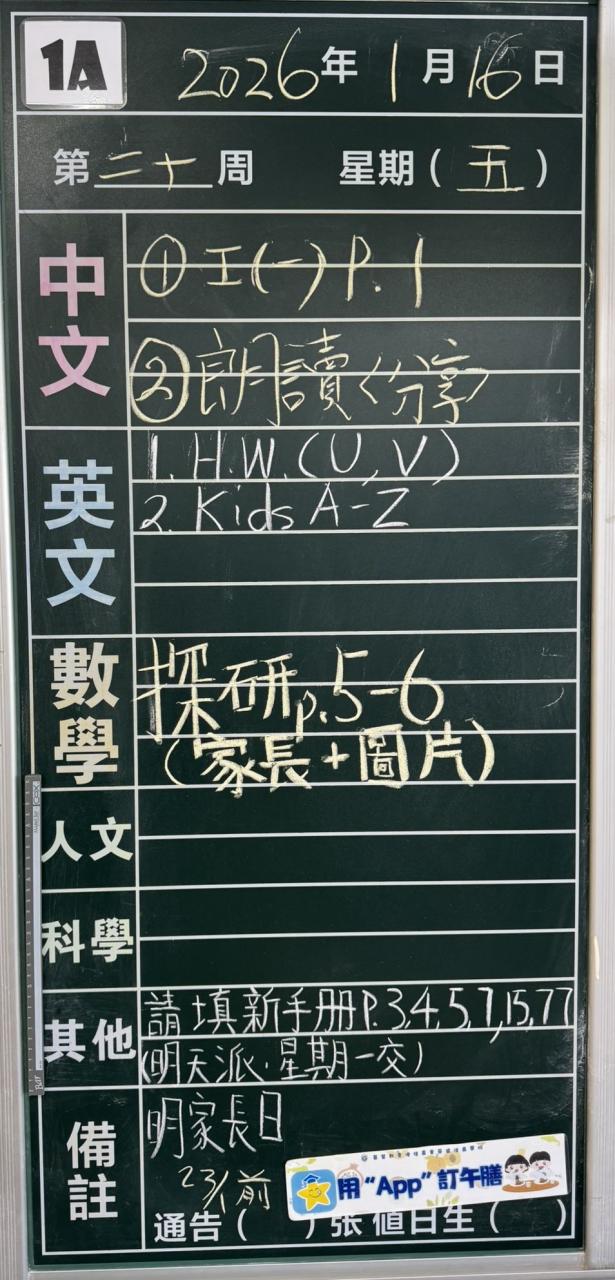 1A
2026年1月16日
第二十周 星期(五)
中文
① 工(一) P.1
② 朗讀〈分享〉
英文
1. H.W. (U, V)
2. Kids A-Z
數學
探研p.5-6
(家長+圖片)
人文
科學
其他
請填新手册P.3,4,5,7,15,77
(明天派.星期一交)
備註
明家長日
23/1前
用“App”訂午膳
通告( )張 值日生( )